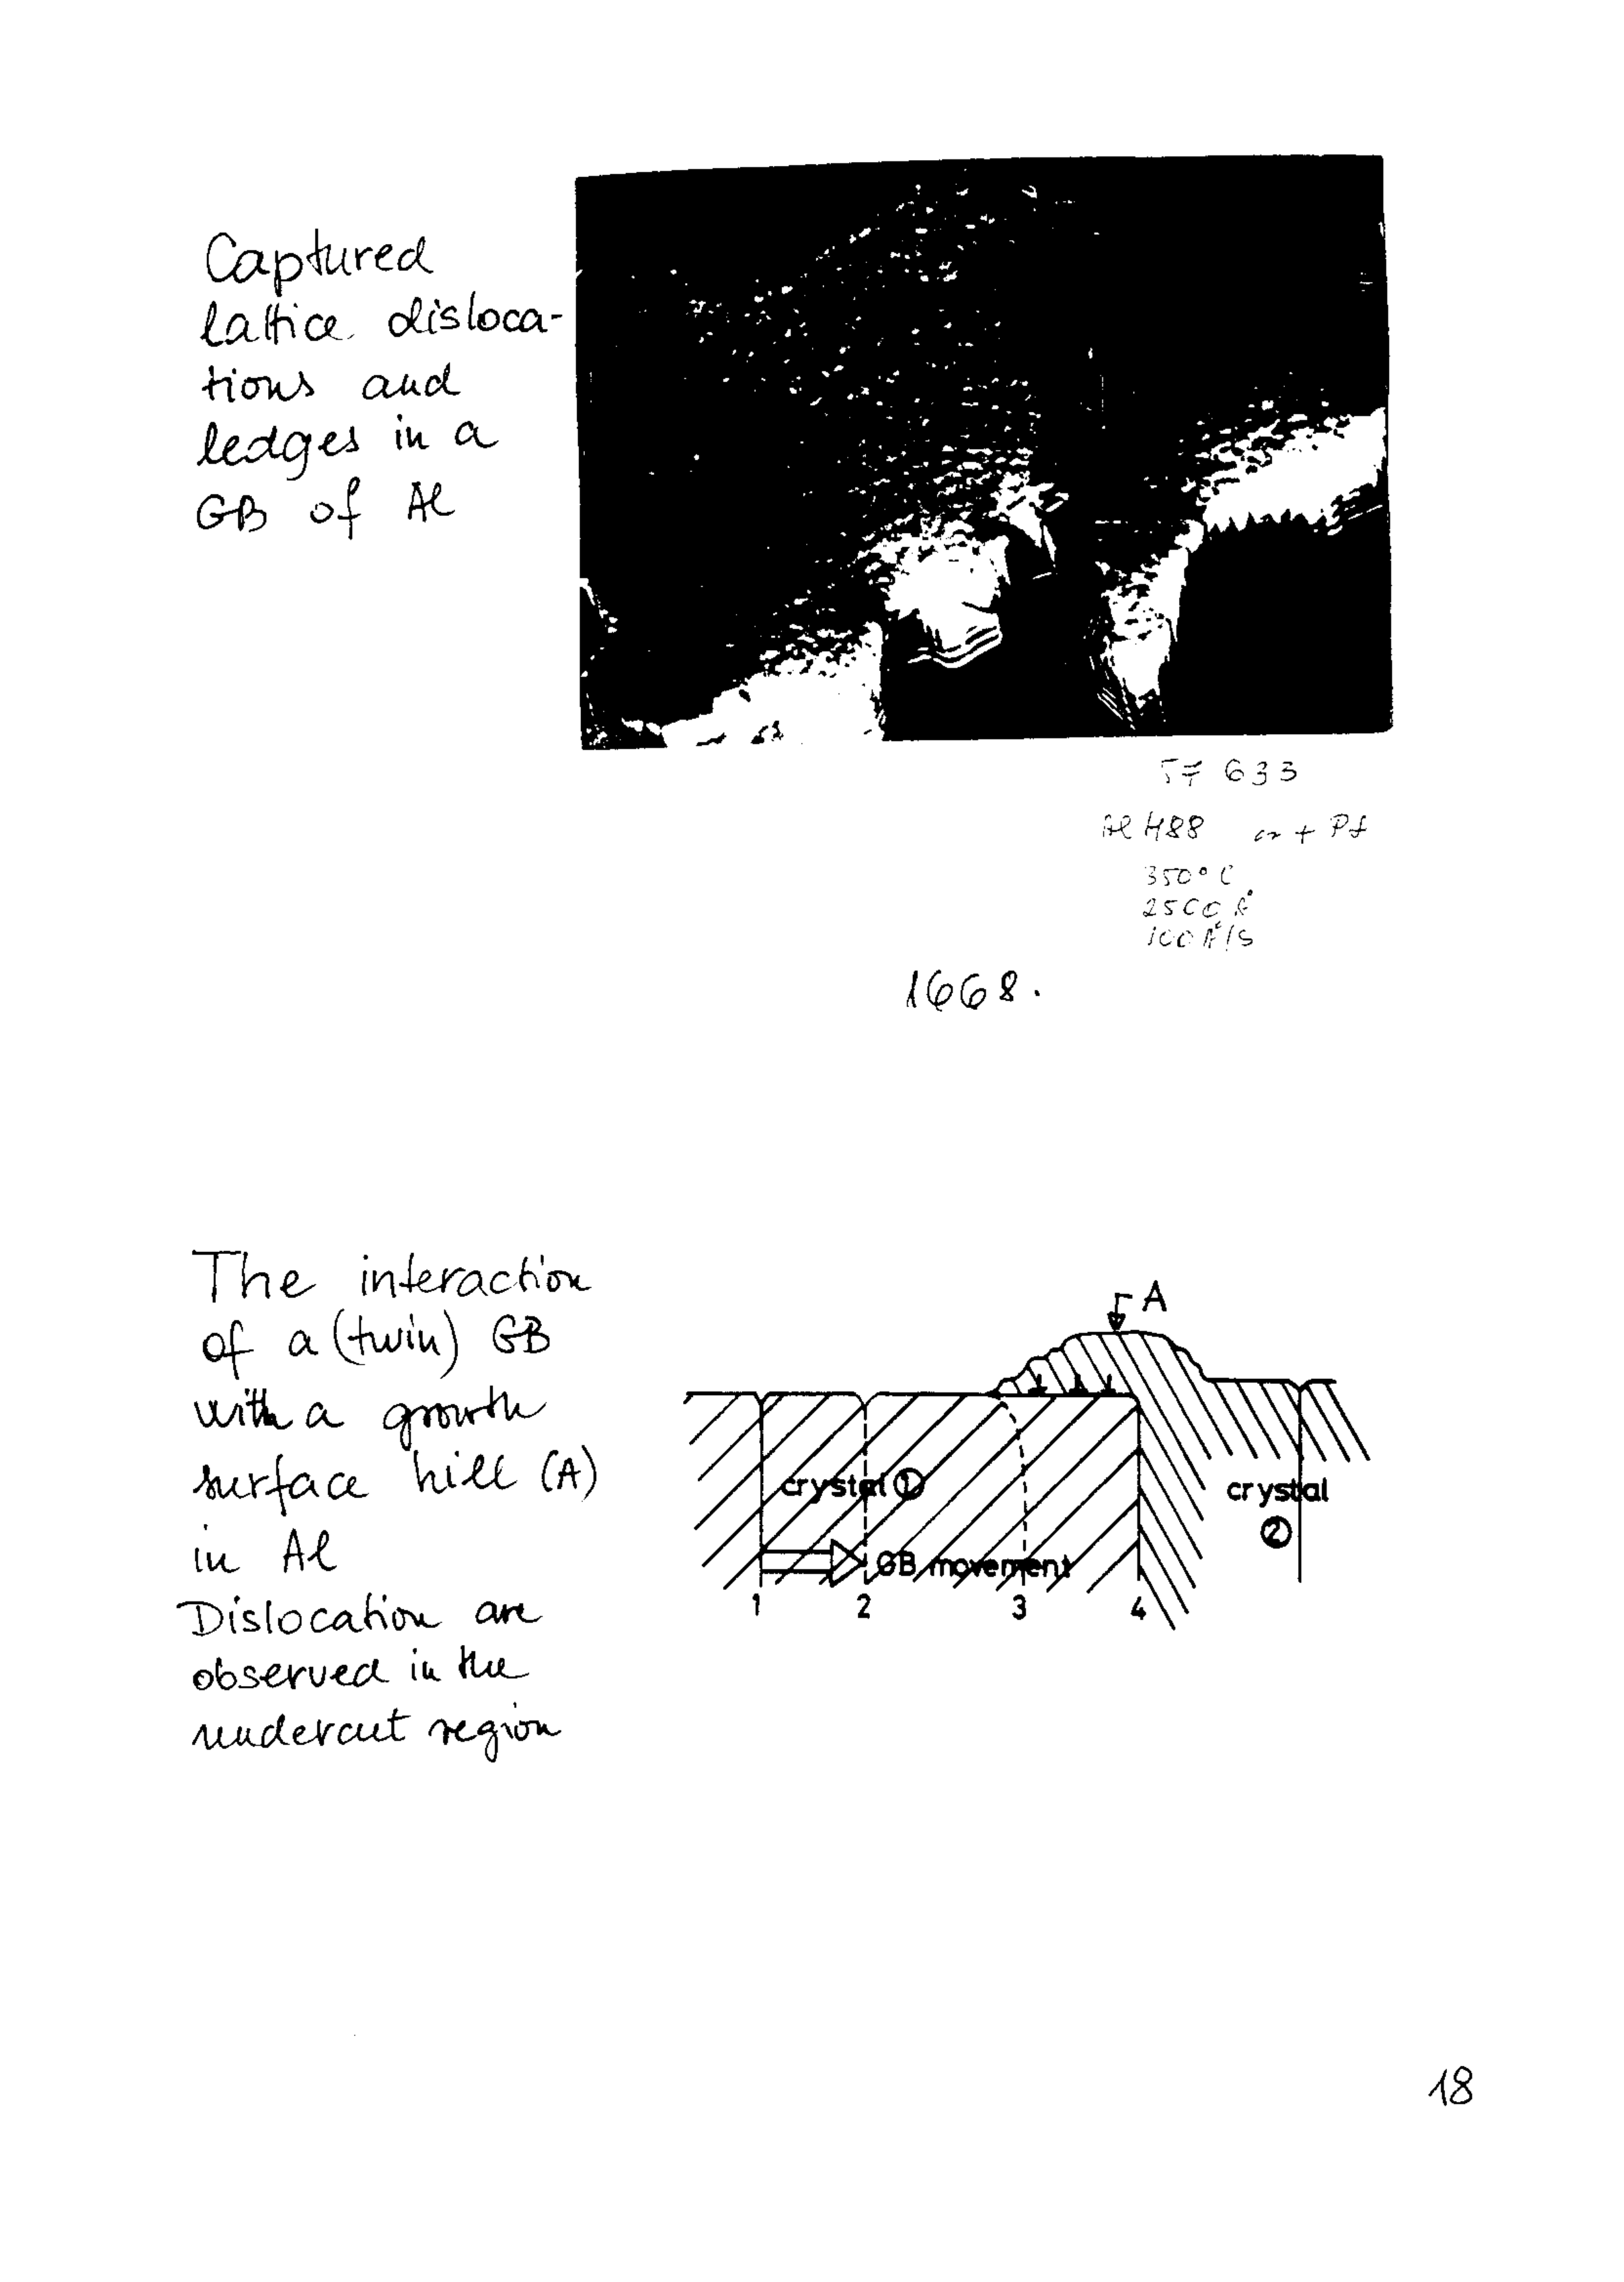 Captured
lattice disloca-
tions and
ledges in a
GB of Al
57 633
Al 488 + Pt
350° C
2500 Å
100 Å/s
1668.
The interaction
of a (twin) GB
with a growth
surface hill (A)
in Al
Dislocation are
observed in the
undercut region
A
crystal ①
crystal
②
GB movement
1 2 3 4
18